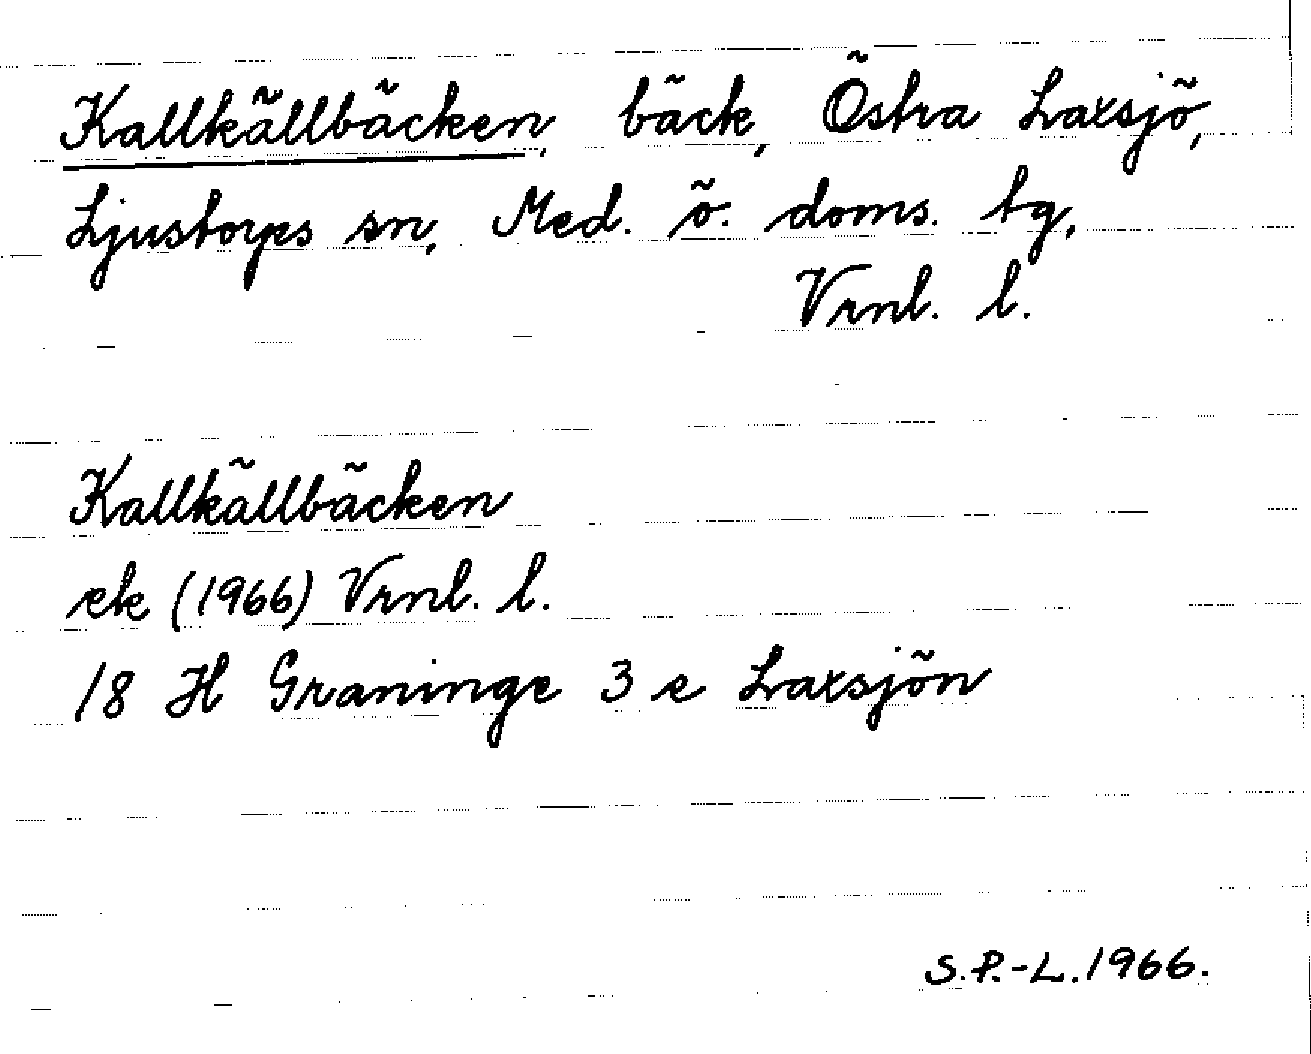 Kallkällbäcken, bäck, Östra Laxsjö,
Ljustorps sn, Med. ö. doms. tg,
Vrnl. l.
Kallkällbäcken
ek (1966) Vrnl. l.
18 H Graninge 3 e Laxsjön
S.P.-L. 1966.